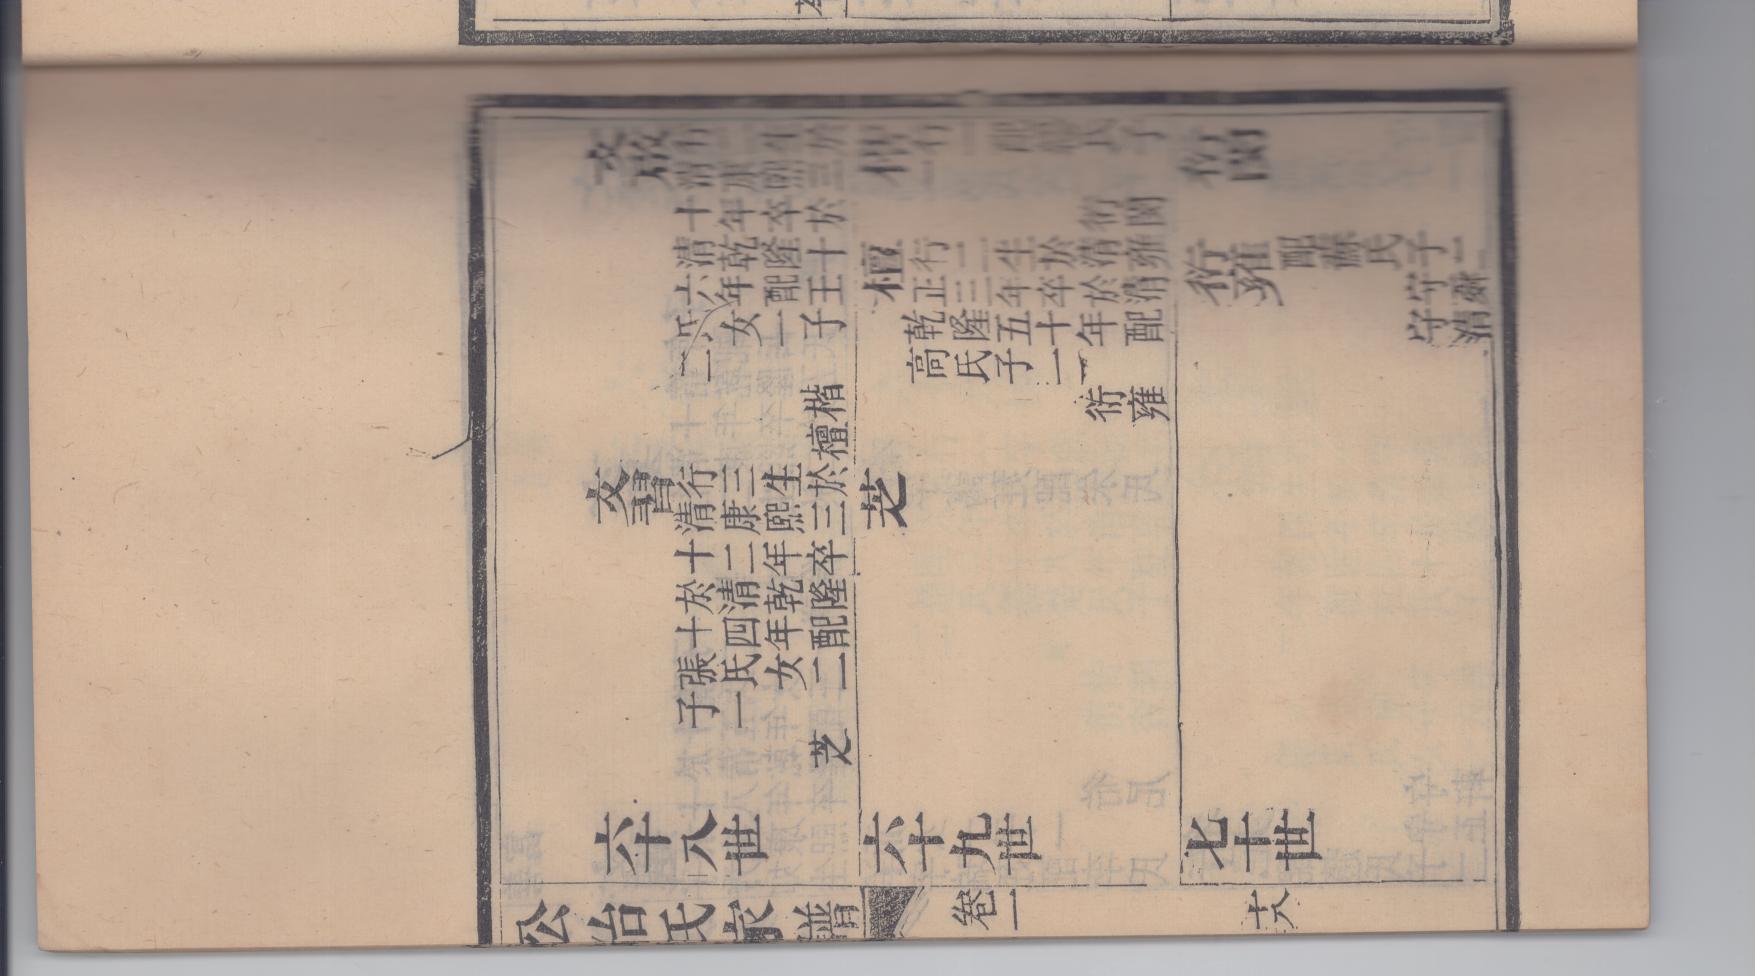 文啟
清康熙三
十年卒於
清乾隆十
六年配王
氏女一子
二
楷
檀
文書
行三生於
清康熙三
十二年卒
於清乾隆
十四年配
張氏女二
子一
芝
六十八世
楷
行一
氏子
衍閔
檀
行二生於清雍
正三年卒於清
乾隆五十年配
高氏子一
衍雍
芝
六十九世
衍閔
衍雍
配蘇氏子二
守清
七十世
公冶氏家譜 卷一 十八